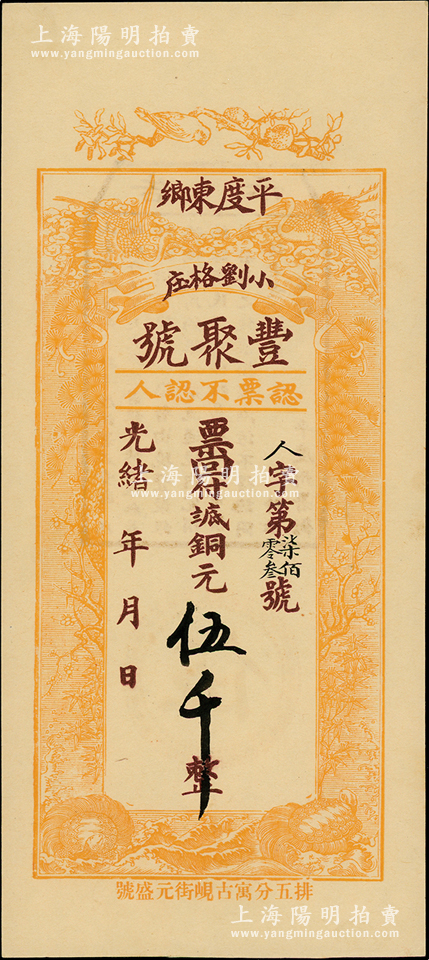 上海陽明拍賣
www.yangmingauction.com
平度東鄉
小劉格庄
豐聚號
認票不認人
人字第柒佰零叁號
票存誠銅元伍千整
光緒 年 月 日
上海陽明拍賣
www.yangmingauction.com
排五分寓古峴街元盛號
上海陽明拍賣
www.yangmingauction.com